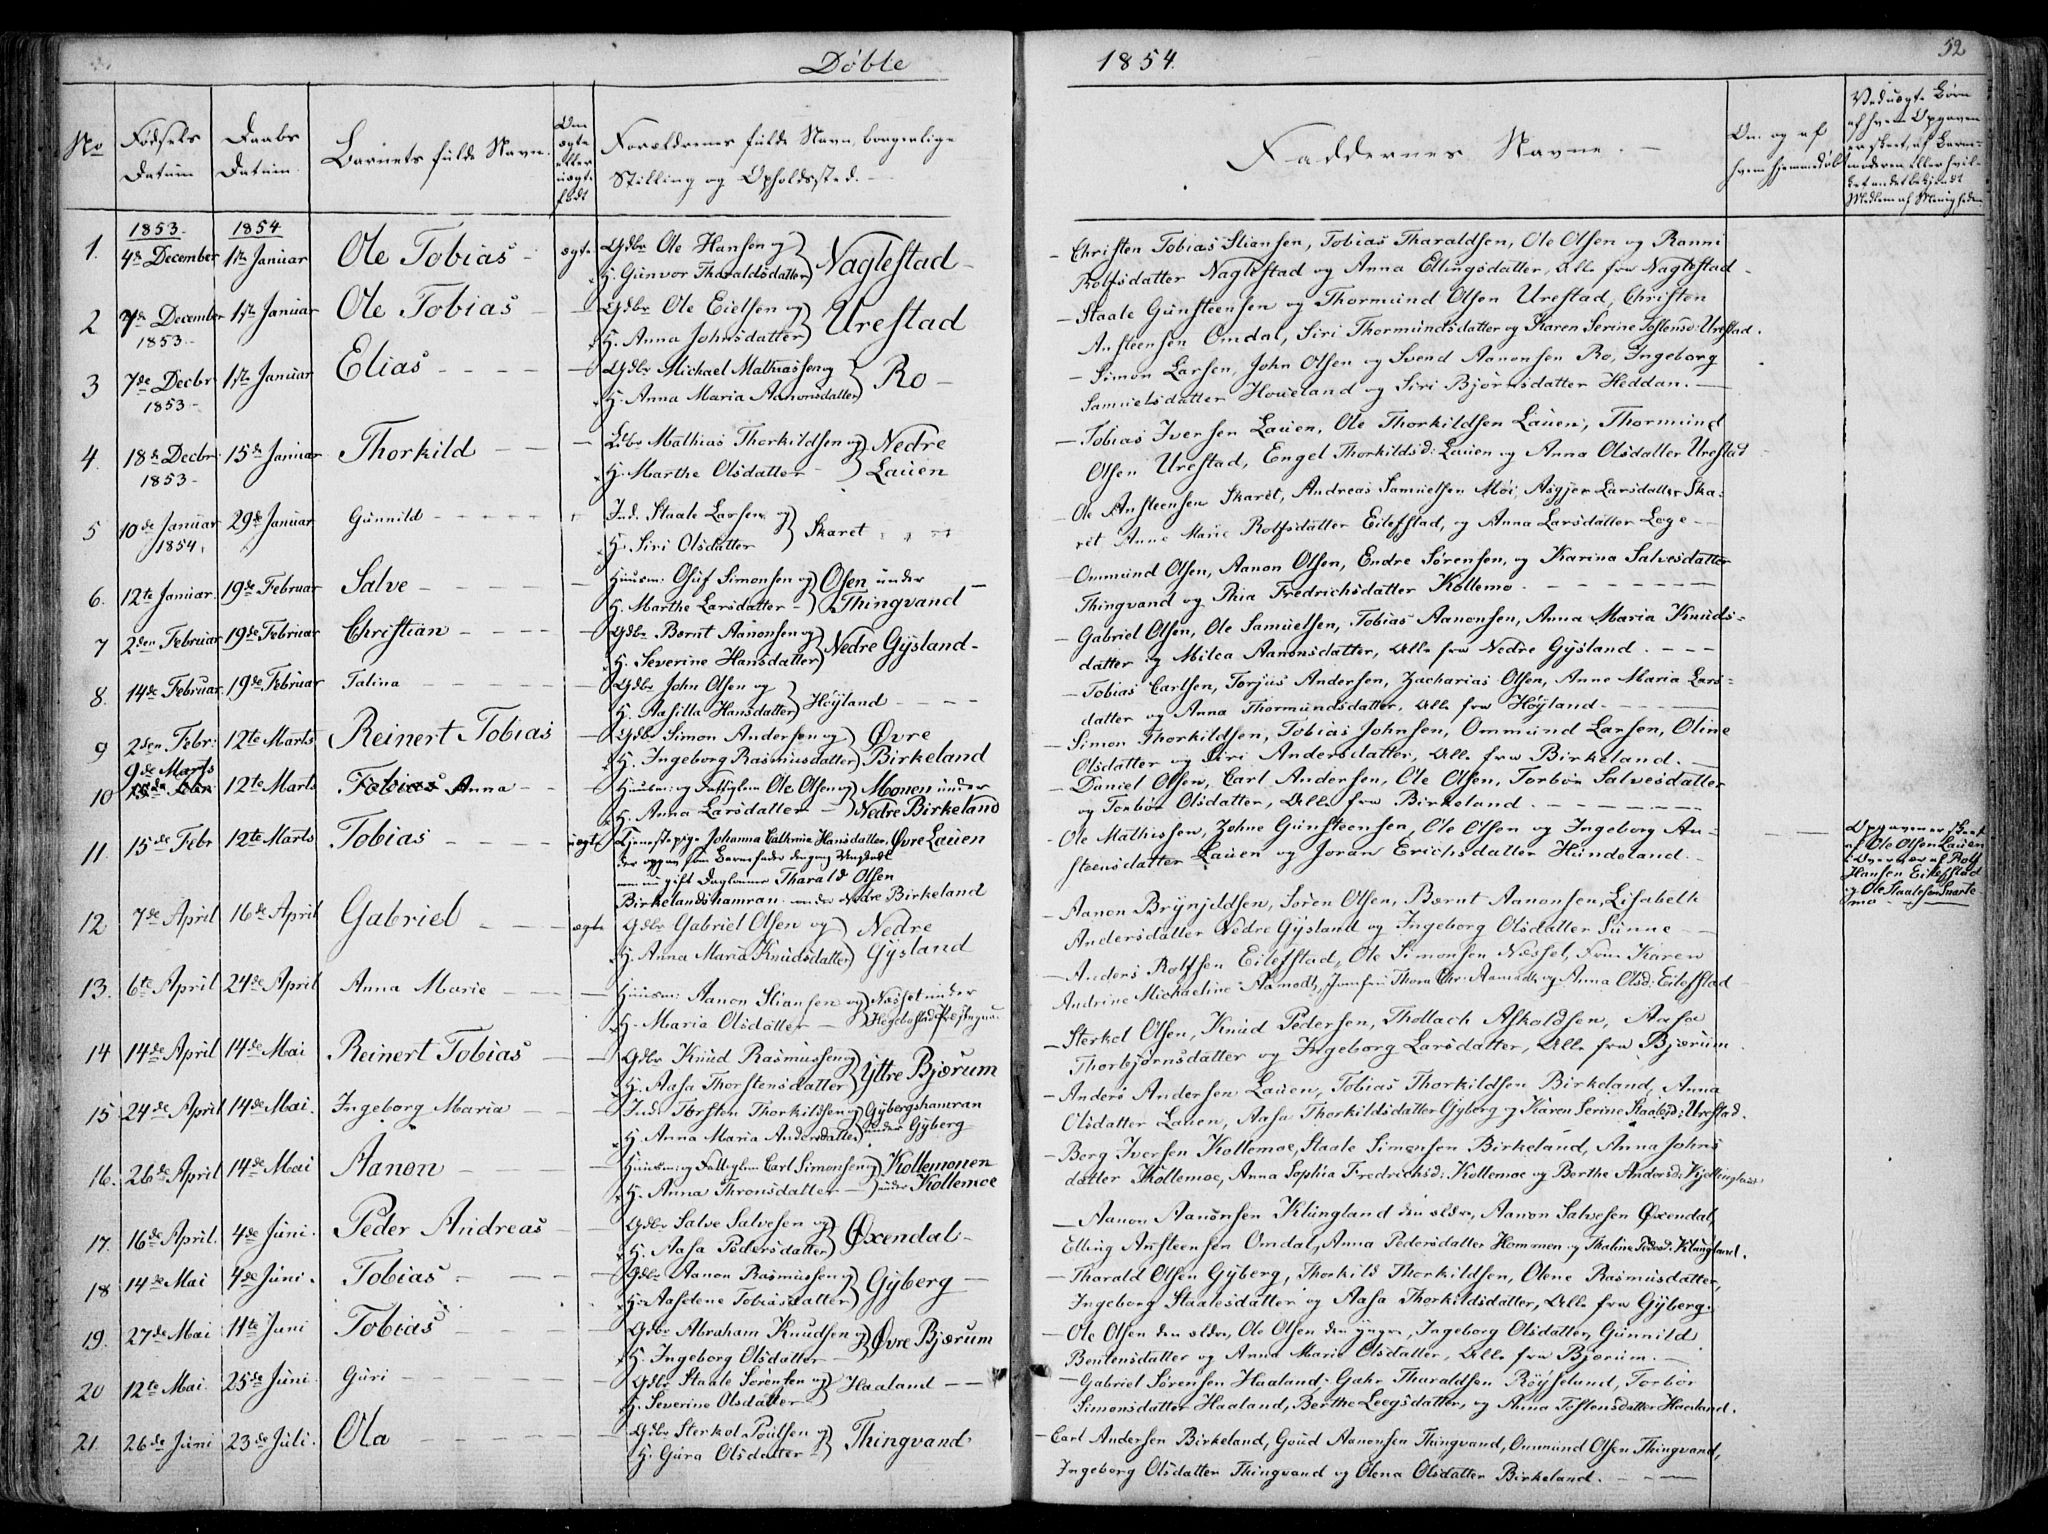 Døbte
1854.
52
No
Fødsels Datum
Daabs Datum
Barnets fulde Navn.
Om ægte eller uægte født
Forældrenes fulde Navn, borgerlige Stilling og Opholdssted.
Faddernes Navne.
Om og af hvem hjemmedøbt
1853. 1854
1. 4de December 1ste Januar Ole Tobias ægte Gdbr Ole Hansen og
H. Gunvor Tharaldsdatter } Naglestad
Christen Tobias Stiansen, Tobias Tharaldsen, Ole Olsen og Ranni
Rolfsdatter Naglestad og Anna Ellingsdatter, Alle fra Naglestad
2 7de December 1ste Januar Ole Tobias Gdbr Ole Eielsen og
1853 H. Anna Johnsdatter } Urestad
Staale Gunsteensen og Thormund Olsen Urestad, Christen
Ansteensen Omdal, Siri Thormundsdatter og Karen Serine Tostensd: Urestad.
3 7de Decbr 1ste Januar Elias Gdbr Michael Mathiassen og
1853 H. Anna Maria Aanonsdatter } Ro
Simon Larsen, John Olsen og Svend Aanonsen Ro, Ingeborg
Samuelsdatter Houeland og Siri Bjørnsdatter Heddan.
4. 18de Decbr 15de Januar Thorkild Lbr Mathias Thorkildsen og
1853 H. Marthe Olsdatter } Nedre Lauen
Tobias Iversen Lauen, Ole Thorkildsen Lauen, Thormund
Olsen Urestad, Engel Thorkildsd: Lauen og Anna Olsdatter Urestad
5 10de Januar 29de Januar Gunnild Ind. Staale Larsen og
1854. H. Siri Olsdatter } Skaret
Ole Ansteensen Skaret, Andreas Samuelsen Møi, Asgjer Larsdatter Ska-
ret Anne Marie Rolfsdatter Eilefstad, og Anna Larsdatter Lege
6. 12te Januar. 19de Februar Salve Huusm: Oluf Simonsen og
H. Marthe Larsdatter } Osen under Thingvand
Ommund Olsen, Aanon Olsen, Endre Sørensen, og Karina Salvesdatter
Thingvand og Thia Fredrichsdatter Kollemo
7 2den Februar 19de Februar Christian Gdbr Bernt Aanonsen og
H. Severine Hansdatter } Nedre Gysland
Gabriel Olsen, Ole Samuelsen, Tobias Aanonsen, Anna Maria Knuds=
datter og Milea Aanonsdatter, Alle fra Nedre Gysland.
8. 14de Februar. 19de Februar Talina Gdbr John Olsen og
H. Aasilla Hansdatter } Høyland
Tobias Carlsen, Torjus Andersen, Zacharias Olsen, Anne Maria Lars=
datter og Anna Thormundsdatter, Alle fra Høyland
9 2den Febr: 12te Marts Reinert Tobias Gdbr Simon Andersen og
H. Ingeborg Rasmusdatter } Øvre Birkeland
Simon Thorkildsen, Tobias Johnsen, Ommund Larsen, Oline
Olsdatter og Siri Andersdatter, Alle fra Birkeland.
10 9de Marts 12te Marts Anna Huusm: og Ole Olsen og
H. Anna Larsdatter } Monen under Nedre Birkeland
Daniel Olsen, Carl Andersen, Ole Olsen, Torbør Salvesdatter
og Torbør Olsdatter, Alle fra Birkeland.
11. 15de Febr 12te Marts Tobias uægte Tjenestepige Johanna Cathrine Hansdatter, Øvre Lauen
der opgav som Barnefader dengang
nu gift Daglønner Tharald Olsen
Birkelandshamran under Nedre Birkeland
Ole Mathissen, Zohne Gunsteensen, Ole Olsen og Ingeborg An-
steensdatter Lauen og Joran Erichsdatter Hundeland.
Opgaven er skeet
af Ole Olsen Lauen
i Overvær af Rolf
Hansen Eilefstad
og Ole Staalesen Svarte
mo
12 7de April 16de April Gabriel ægte Gdbr Gabriel Olsen og
H. Anna Maria Knudsdatter } Nedre Gysland
Aanon Brynjeldsen, Søren Olsen, Bernt Aanonsen, Lisabeth
Andersdatter Nedre Gysland og Ingeborg Olsdatter Sunne
13. 6te April 24de April Anna Marie Huusm: Aanon Stiansen og
H. Maria Olsdatter } Næsset under
Anders Rolfsen Eilefstad, Ole Simonsen Næsset, Frue Karen
Andrine Michaeline Aamodt, Jomfru Thora Chr: Aamodt og Anna Olsd: Eilefstad
14 14de April 14de Mai Reinert Tobias Gdbr Knud Rasmussen og
H. Aasa Thorstensdatter } Yttre Bjærum
Sterkel Olsen, Knud Pedersen, Thollach Askoldsen, Aasa
Thorbjørnsdatter og Ingeborg Larsdatter, Alle fra Bjærum.
15 24de April 14de Mai. Ingeborg Maria Ind. Torsten Thorkildsen og
H. Anna Maria Andersdatter } Gybergshamran under Gyberg
Anders Andersen Lauen, Tobias Thorkildsen Birkeland, Anna
Olsdatter Lauen, Aasa Thorkildsdatter Gyberg og Karen Serine Staalesd: Urestad.
16. 26de April 14de Mai Aanon Huusm: og Carl Simonsen og
H. Anna Thronsdatter } Kollemonen under Kollemoe
Berg Iversen Kollemoe, Staale Simonsen Birkeland, Anna Johns
datter Kollemoe, Anna Sophia Fredrichsd: Kollemoe og Berthe Andersd:
17. 16de April. 4de Juni. Peder Andreas Gdbr Salve Salvesen og
H. Aasa Pedersdatter } Øxendal
Aanon Aanonsen Klungland den eldre, Aanon Salvesen Øxendal,
Elling Ansteensen Omdal, Anna Pedersdatter Hommen og Thaline Pedersd: Klungland.
18 14de Mai 4de Juni. Tobias Gdbr Aanon Rasmussen og
H. Aaselene Tobiasdatter } Gyberg
Tharald Olsen Gyberg, Thorkild Thorkildsen, Olene Rasmusdatter,
Ingeborg Staalesdatter og Aasa Thorkildsdatter, Alle fra Gyberg.
19. 27de Mai 11te Juni Tobias Gdbr Abraham Knudsen og
H. Ingeborg Olsdatter } Øvre Bjærum
Ole Olsen den eldre, Ole Olsen den yngre, Ingeborg Olsdatter, Gunnild
Bentensdatter og Anna Marie Olsdatter, Alle fra Bjærum.
20 12te Mai. 25de Juni Guri Gdbr Staale Sørensen og
H. Severine Olsdatter } Haaland
Gabriel Sørensen Haaland, Gahr Tharaldsen Røyseland, Torbør
Simonsdatter Haaland, Berthe Leegsdatter, og Anna Tostensdatter Haaland.
21. 26de Juni 23de Juli. Ola Gdbr Sterkel Poulsen og
H. Gura Olsdatter } Thingvand
Carl Andersen Birkeland, Goud Aanonsen Thingvand, Ommund Olsen Thingvand,
Ingeborg Olsdatter Thingvand og Olena Olsdatter Birkeland.